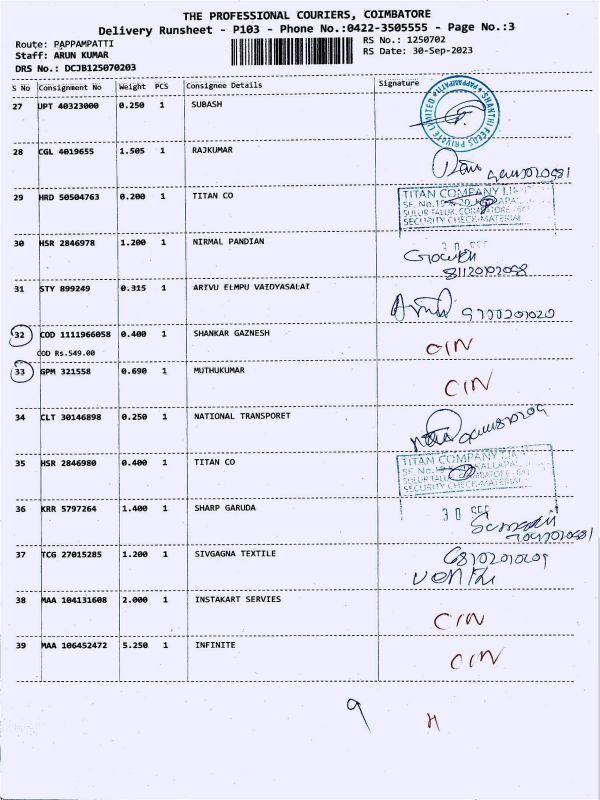 THE PROFESSIONAL COURIERS, COIMBATORE
Delivery Runsheet - P103 - Phone No.:0422-3505555 - Page No.:3
Route: PAPPAMPATTI
RS No.: 1250702
Staff: ARUN KUMAR
RS Date: 30-Sep-2023
DRS No.: DCJB125070203
S No Consignment No Weight PCS Consignee Details Signature
27 UPT 40323000 0.250 1 SUBASH
SHANTHI FEEDS PRIVATE LIMITED
28 CGL 4019655 1.505 1 RAJKUMAR
29 HRD 50504763 0.200 1 TITAN CO
TITAN COMPANY
SECURITY CHECK-MATERIAL
30 HSR 2846978 1.200 1 NIRMAL PANDIAN
31 STY 899249 0.315 1 ARIVU ELMPU VAIDYASALAI
32 COD 1111966058 0.400 1 SHANKAR GAZNESH
CIN
COD Rs.549.00
33 GPM 321558 0.690 1 MUTHUKUMAR
CIN
34 CLT 30146898 0.250 1 NATIONAL TRANSPORET
35 HSR 2846980 0.400 1 TITAN CO
TITAN COMPANY
SECURITY CHECK-MATERIAL
30 SEP
36 KRR 5797264 1.400 1 SHARP GARUDA
37 TCG 27015285 1.200 1 SIVGAGNA TEXTILE
38 MAA 104131608 2.000 1 INSTAKART SERVIES
CIN
39 MAA 106452472 5.250 1 INFINITE
CIN
9